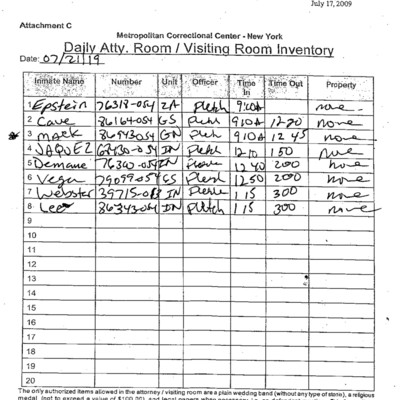 July 17, 2009
Attachment C
Metropolitan Correctional Center - New York
Daily Atty. Room / Visiting Room Inventory
Date: 07/21/19
Inmate Name Number Unit Officer Time In Time Out Property
1 Epstein 76318-054 ZA 9:10A none
2 Cave 86164054 GS 910A 1220 none
3 mack 86943054 GN 910A 12 45 none
4 JAQUEZ -054 IN 1210 150 none
5 76360-054 1240 200 none
6 Vega 79099-054 GS 1250 200 none
7 Webster 39715-013 IN 1 15 300 none
8 Lee 86343054 IN 1 15 300 none
9
10
11
12
13
14
15
16
17
18
19
20
The only authorized items allowed in the attorney / visiting room are a plain wedding band (without any type of stone), a religious